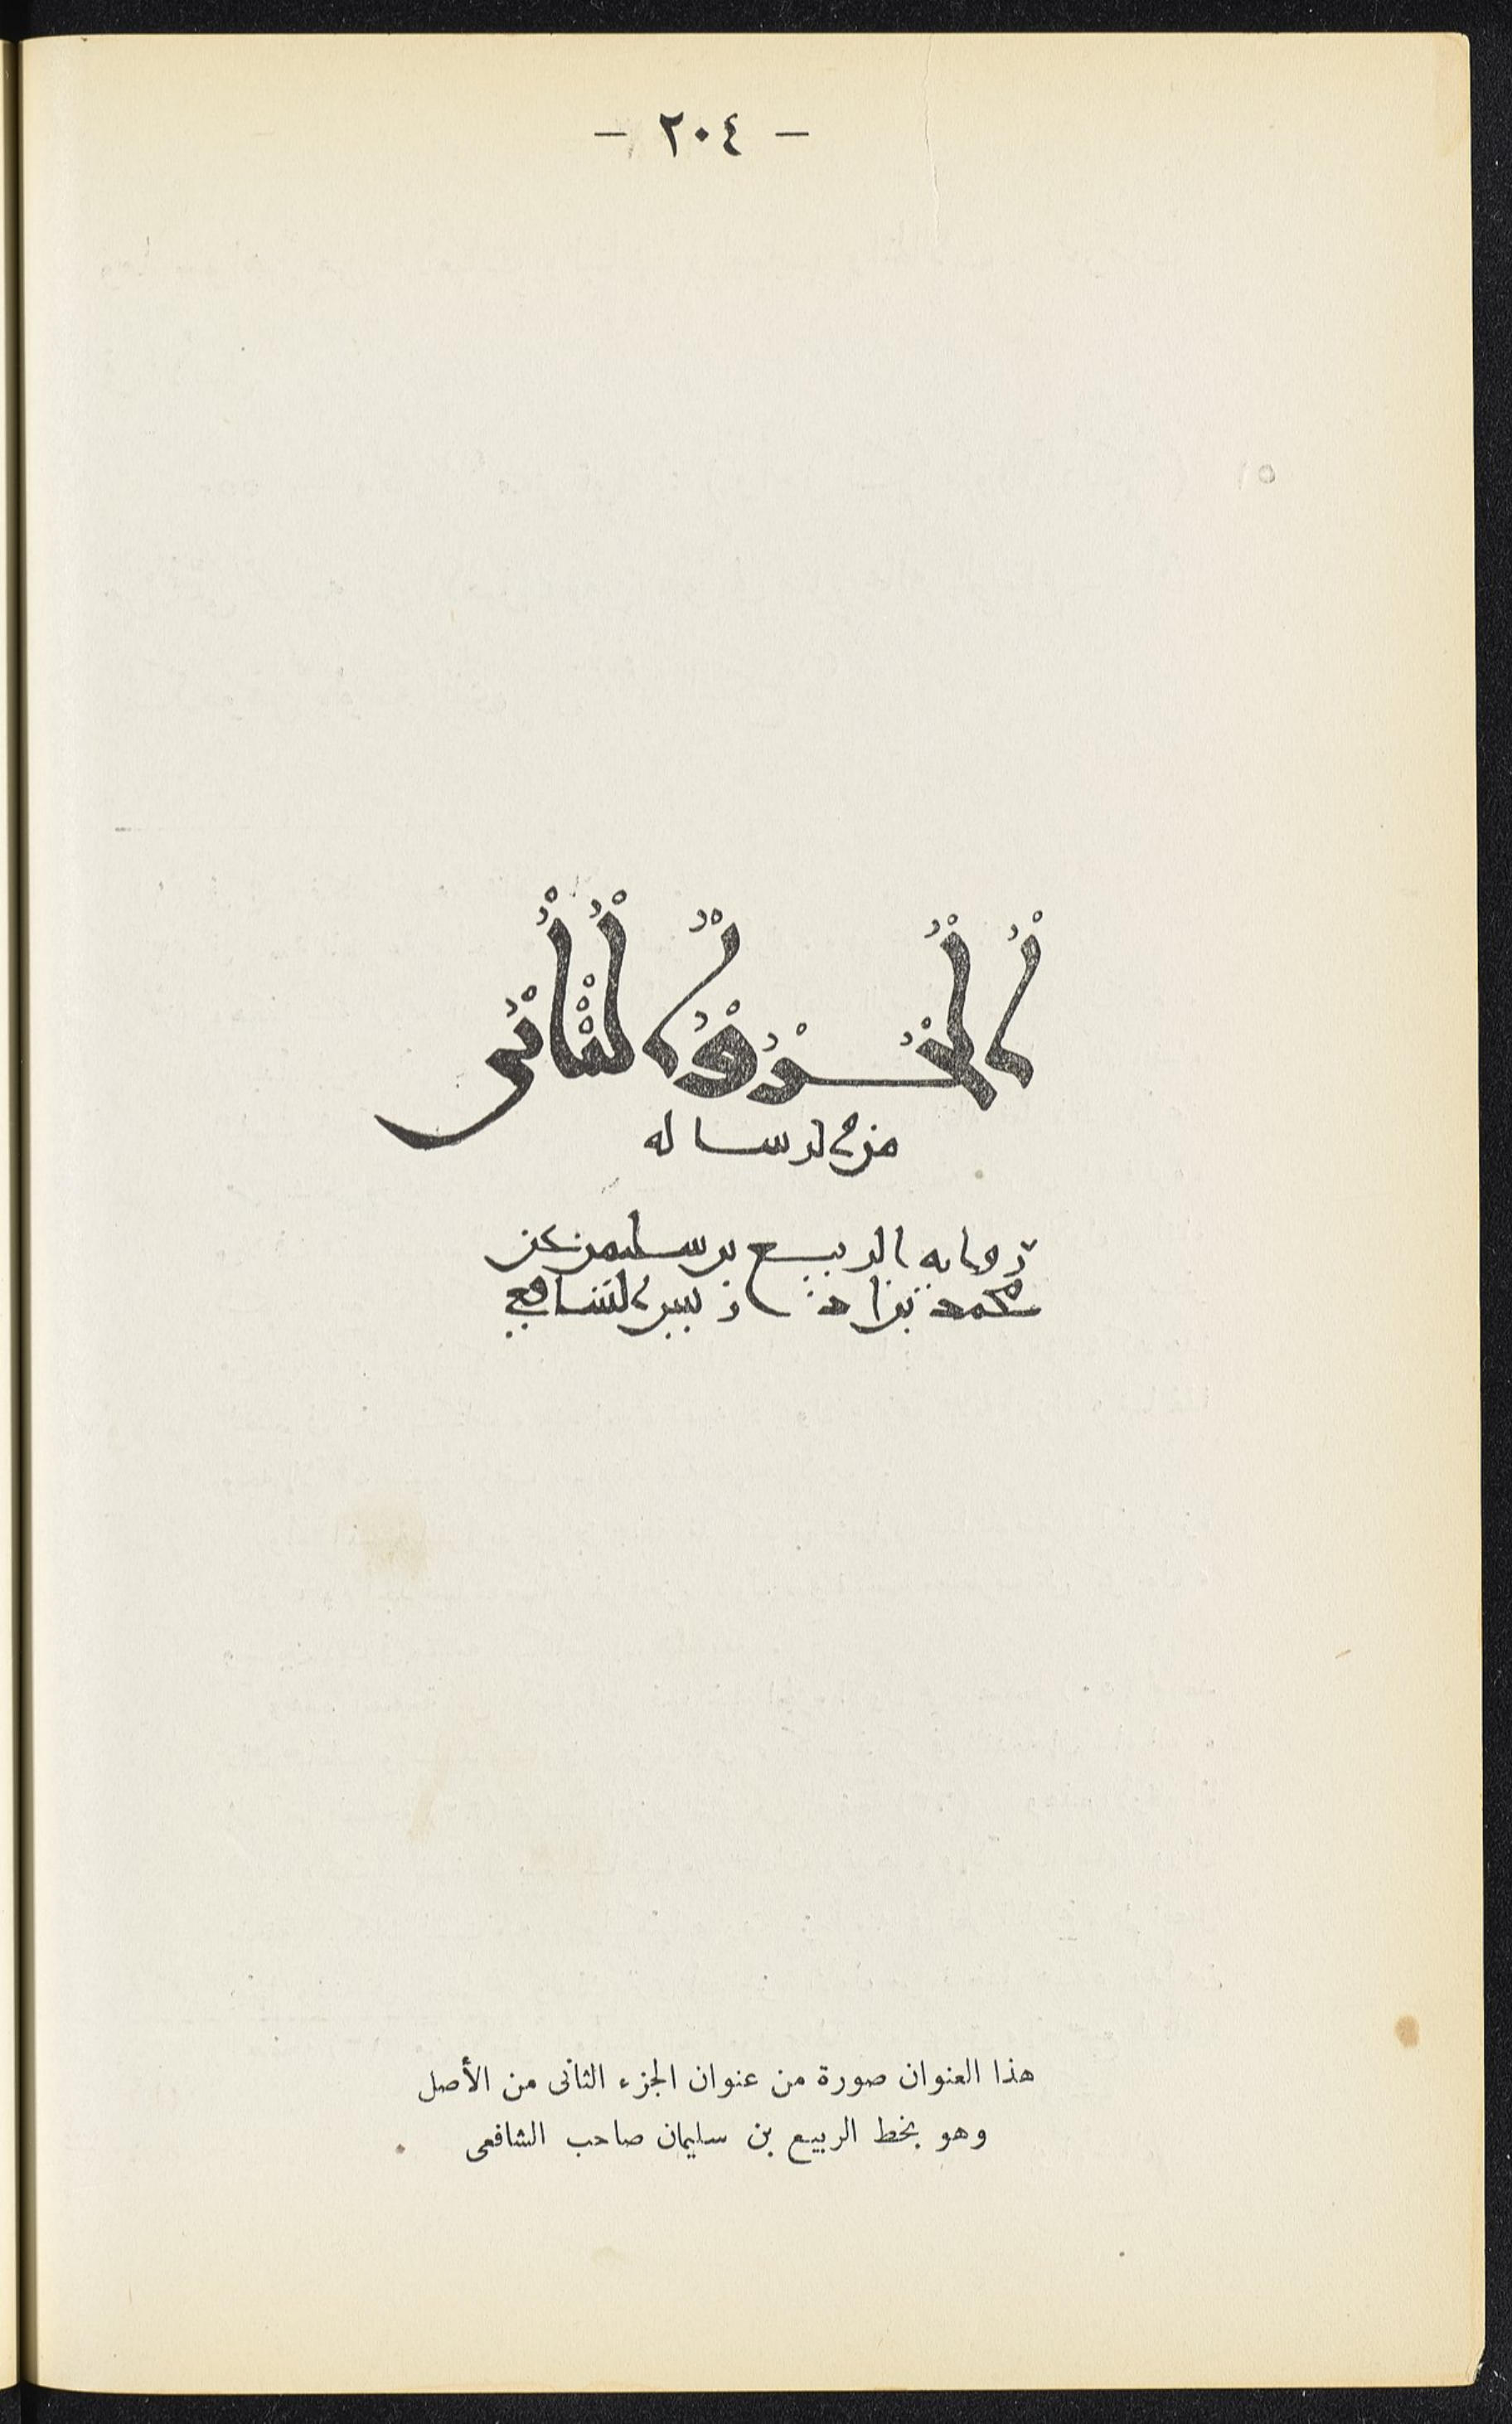 - ٢٠٤ -
الجزو الثانى
من الرساله
روايه الربيع بن سليمن عن
محمد بن ادريس الشافعي
هذا العنوان صورة من عنوان الجزء الثانى من الأصل
وهو بخط الربيع بن سليمان صاحب الشافعى